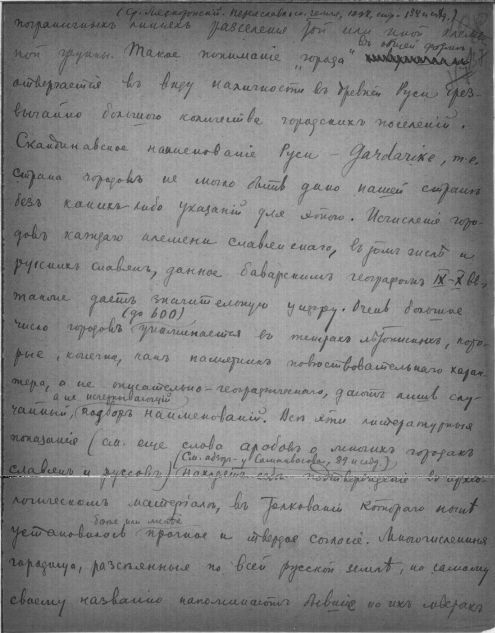 (Ср. Пясторжской. Переяславск. земля, 1898, стр. 184 и след.)
пограничных линиях расселения той или иной племен
ной группы. Такое понимание "города" в общей форме
отвергается в виду наличности в древней Руси чрез-
вычайно большого количества городских поселений.
Скандинавское наименованіе Руси – Gardarike, т.е.
страна городов не могло быть дано нашей стране
без каких-либо указаній для этого. Исчисленіе горо-
дов каждаго племени славянскаго, в том числе и
русских славян, данное баварским географом IX-X вв.,
также даетъ значительную цифру. Очень большое
число городов (до 600) упоминается в текстах летописных, кото-
рые, конечно, как памятник повествовательнаго харак-
тера, а не описательно-географическаго, дают лишь слу-
чайный, а не исчерпывающій подбор наименованій. Все эти литературныя
показанія (см. еще слова арабов о многих городах
славян и руссов) находят себе подтвержденіе в архео-
логическом материале, в толковании котораго ныне
установилось более или менее прочное и твердое согласіе. Многочисленныя
городища, разсеянные по всей русской земле, по самому
своему названию напоминают бывшие на их местах